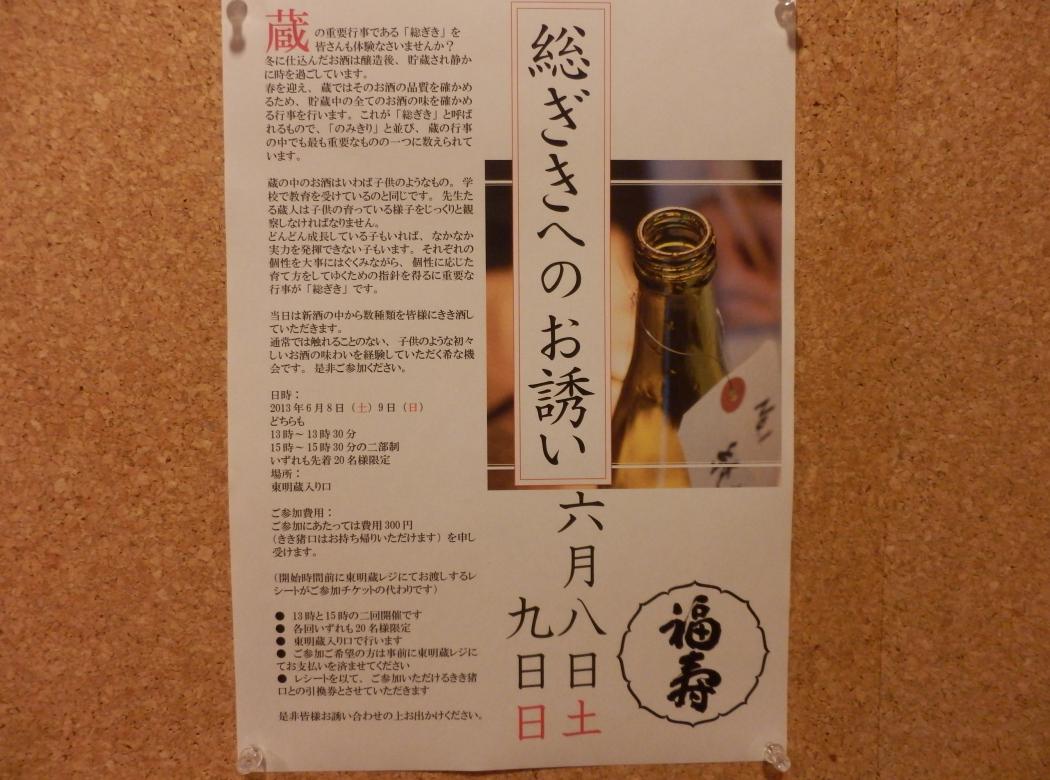 総ぎきへのお誘い
六月八日土
九日日
福寿
蔵の重要行事である「総ぎき」を
皆さんも体験なさいませんか？
冬に仕込んだお酒は醸造後、貯蔵され静か
に時を過ごしています。
春を迎え、蔵ではそのお酒の品質を確かめ
るため、貯蔵中の全てのお酒の味を確かめ
る行事を行います。これが「総ぎき」と呼ば
れるもので、「のみきり」と並び、蔵の行事
の中でも最も重要なものの一つに数えられて
います。
蔵の中のお酒はいわば子供のようなもの。学
校で教育を受けているのと同じです。先生た
る蔵人は子供の育っている様子をじっくりと観
察しなければなりません。
どんどん成長している子もいれば、なかなか
実力を発揮できない子もいます。それぞれの
個性を大事にはぐくみながら、個性に応じた
育て方をしてゆくための指針を得るに重要な
行事が「総ぎき」です。
当日は新酒の中から数種類を皆様にきき酒し
ていただきます。
通常では触れることのない、子供のような初々
しいお酒の味わいを経験していただく希な機
会です。是非ご参加ください。
日時：
2013年6月8日（土）9日（日）
どちらも
13時～13時30分
15時～15時30分の二部制
いずれも先着20名様限定
場所：
東明蔵入り口
ご参加費用：
ご参加にあたっては費用300円
（きき猪口はお持ち帰りいただけます）を申し
受けます。
（開始時間前に東明蔵レジにてお渡しするレ
シートがご参加チケットの代わりです）
● 13時と15時の二回開催です
● 各回いずれも20名様限定
● 東明蔵入り口で行います
● ご参加ご希望の方は事前に東明蔵レジに
てお支払いを済ませてください
● レシートを以て、ご参加いただけるきき猪
口との引換券とさせていただきます
是非皆様お誘い合わせの上お出かけください。